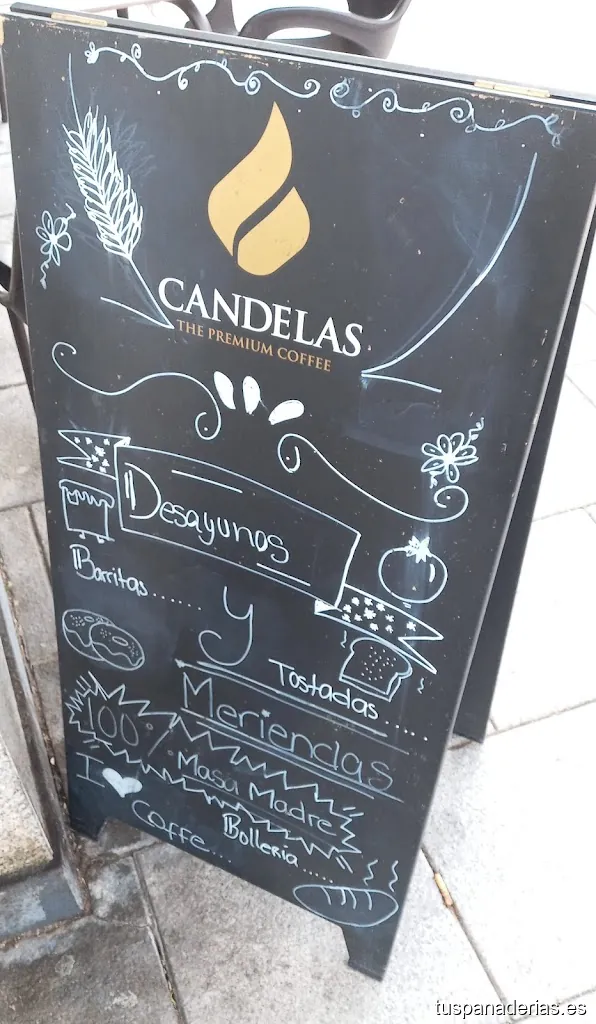 CANDELAS
THE PREMIUM COFFEE
Desayunos
Barritas......
y
Tostadas......
Meriendas
100%
Masa Madre
I ♥ Caffe...
Bolleria......
tuspanaderias.es